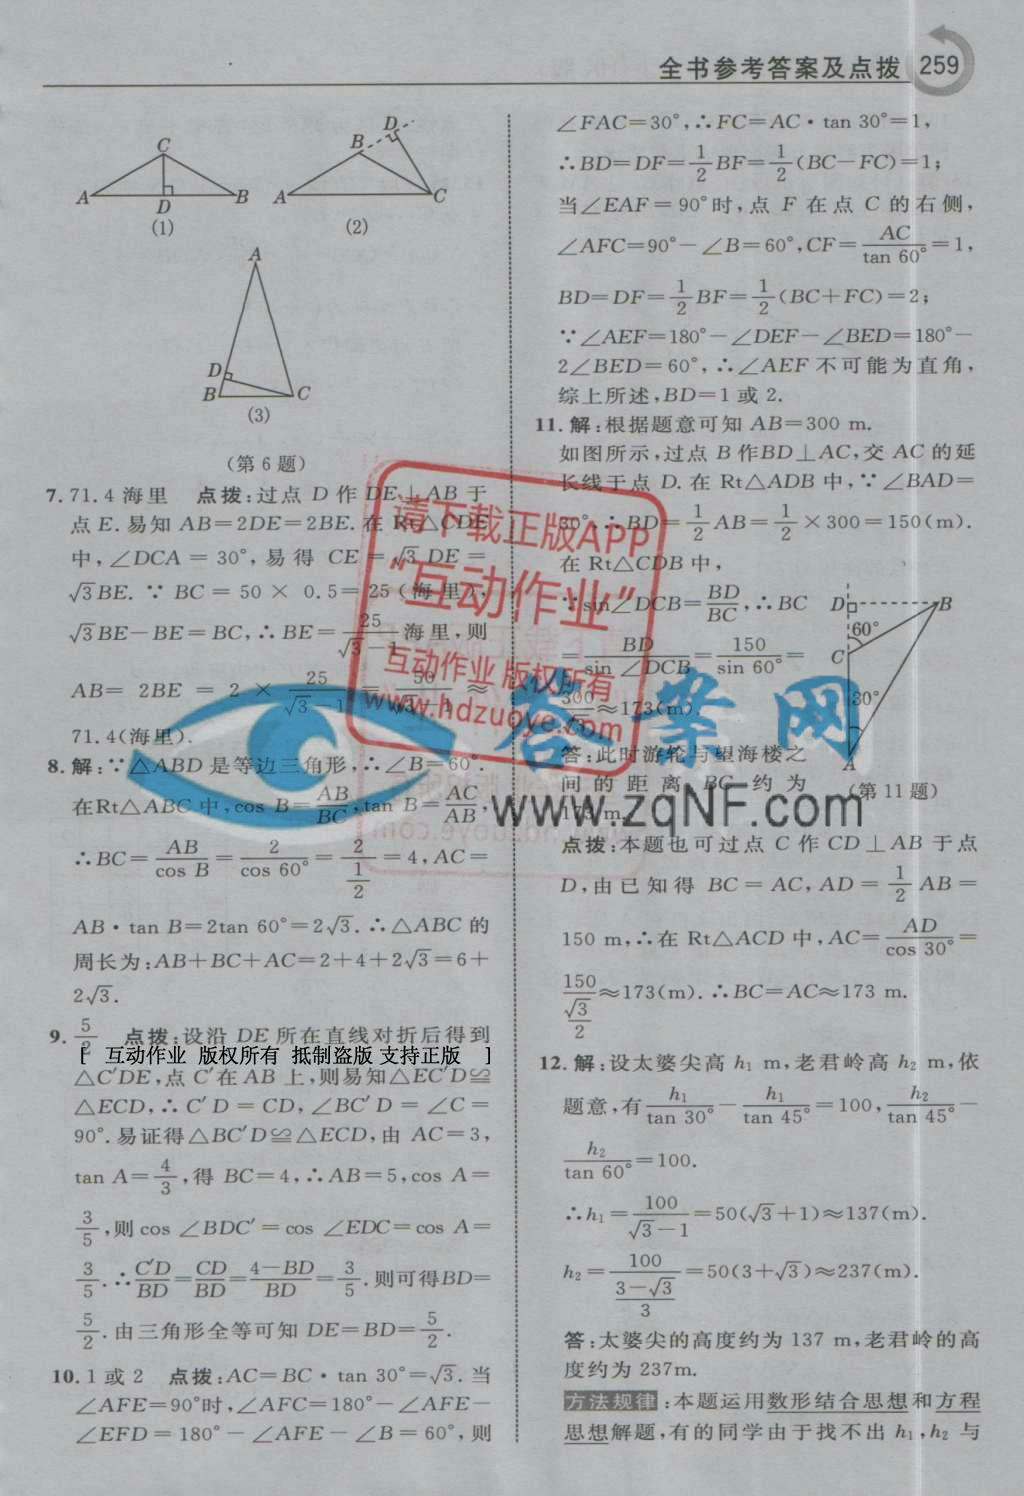 全书参考答案及点拨 259
C
A D B
(1)
D
B
A C
(2)
A
D
B C
(3)
(第 6 题)
7. 71.4 海里 点拨:过点 D 作 DE⊥AB 于
点 E. 易知 AB=2DE=2BE. 在 Rt△CDE
中,∠DCA=30°,易得 CE=√3DE=
√3BE. ∵BC=50×0.5=25(海里),
√3BE-BE=BC,∴BE=25/(√3-1)海里,则
AB=2BE=2×25/(√3-1)=50/(√3-1)≈
71.4(海里).
8. 解:∵△ABD 是等边三角形,∴∠B=60°.
在Rt△ABC 中,cos B=AB/BC,tan B=AC/AB,
∴BC=AB/cos B=2/cos 60°=2/(1/2)=4,AC=
AB·tan B=2tan 60°=2√3.∴△ABC 的
周长为:AB+BC+AC=2+4+2√3=6+
2√3.
9. 5/2 点拨:设沿 DE 所在直线对折后得到
[ 互动作业 版权所有 抵制盗版 支持正版 ]
△C′DE,点 C′在 AB 上,则易知△EC′D≌
△ECD,∴C′D=CD,∠BC′D=∠C=
90°. 易证得△BC′D≌△ECD,由 AC=3,
tan A=4/3,得 BC=4,∴AB=5,cos A=
3/5,则 cos ∠BDC′=cos ∠EDC=cos A=
3/5.∴C′D/BD=CD/BD=(4-BD)/BD=3/5.则可得BD=
5/2.由三角形全等可知 DE=BD=5/2.
10. 1 或 2 点拨:AC=BC·tan 30°=√3.当
∠AFE=90°时,∠AFC=180°-∠AFE-
∠EFD=180°-∠AFE-∠B=60°,则
∠FAC=30°,∴FC=AC·tan 30°=1,
∴BD=DF=1/2BF=1/2(BC-FC)=1;
当∠EAF=90°时,点 F 在点 C 的右侧,
∠AFC=90°-∠B=60°,CF=AC/tan 60°=1,
BD=DF=1/2BF=1/2(BC+FC)=2;
∵∠AEF=180°-∠DEF-∠BED=180°-
2∠BED=60°,∴∠AEF 不可能为直角,
综上所述,BD=1 或 2.
11. 解:根据题意可知 AB=300 m.
如图所示,过点 B 作BD⊥AC,交 AC 的延
长线于点 D. 在 Rt△ADB 中,∵∠BAD=
30°,∴BD=1/2AB=1/2×300=150(m).
在 Rt△CDB 中,
∵sin∠DCB=BD/BC,∴BC
=BD/sin ∠DCB=150/sin 60°=
300/√3≈173(m).
答:此时游轮与望海楼之
间的距离 BC 约为
173 m.
D B
60°
C
30°
A
(第 11 题)
点拨:本题也可过点 C 作 CD⊥AB 于点
D,由已知得 BC=AC,AD=1/2AB=
150 m,∴在 Rt△ACD 中,AC=AD/cos 30°=
150/(√3/2)≈173(m).∴BC=AC≈173 m.
12. 解:设太婆尖高 h₁ m,老君岭高 h₂ m,依
题意,有h₁/tan 30°-h₁/tan 45°=100,h₂/tan 45°-
h₂/tan 60°=100.
∴h₁=100/(√3-1)=50(√3+1)≈137(m).
h₂=100/((3-√3)/3)=50(3+√3)≈237(m).
答:太婆尖的高度约为 137 m,老君岭的高
度约为 237m.
方法规律:本题运用数形结合思想和方程
思想解题,有的同学由于找不出 h₁,h₂ 与
请下载正版APP
“互动作业”
互动作业 版权所有
www.hdzuoye.com
答案网
www.zqNF.com